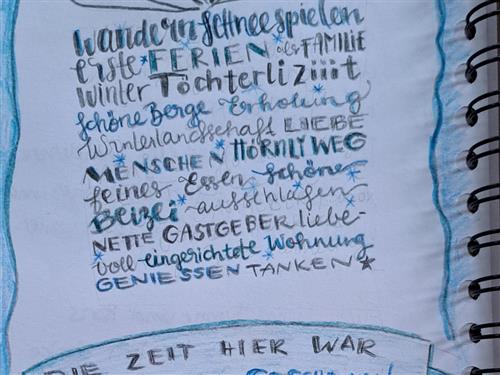 wandern schneespielen
erste *FERIEN als FAMILIE
winter Töchterliziiit
schöne Berge Erholung
Winterlandschaft LIEBE
MENSCHEN HÖRNLIWEG
feines Essen schöne
Beizli ausschlafen
NETTE GASTGEBER liebe-
voll eingerichtete Wohnung
GENIESSEN TANKEN
DIE ZEIT HIER WAR